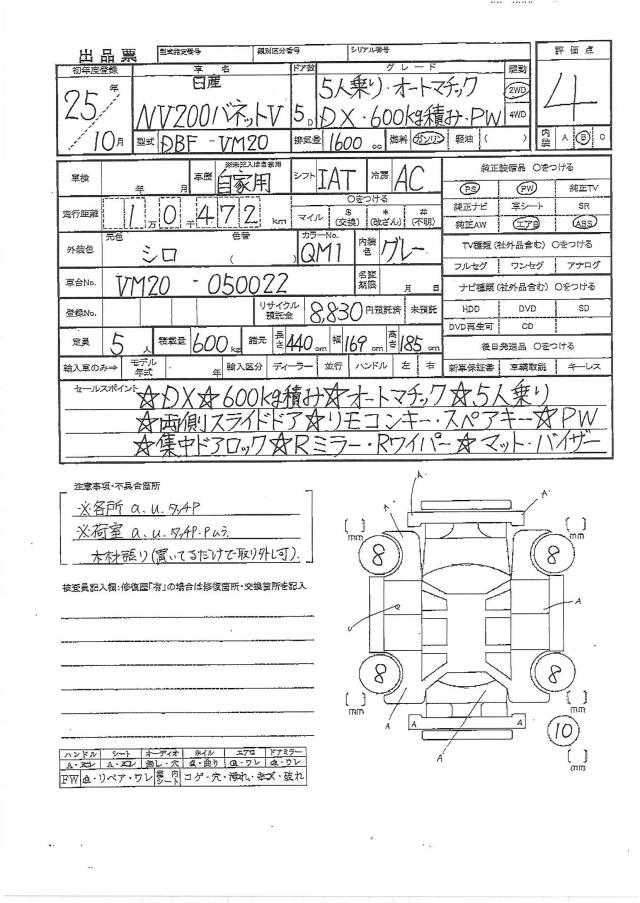 出品票
型式指定番号 類別区分番号 シリアル番号
初年度登録 車名 ドア数 グレード 駆動 評価点
25年 日産 5人乗り・オートマチック 2WD 4
10月 NV200バネットV 5D DX・600kg積み・PW 4WD
型式 DBF-VM20 排気量 1600cc 燃料 ガソリン・軽油( ) 内装 A B C
車検 年 月 車歴 ※未記入は自家用 自家用 シフト IAT 冷房 AC 純正装備品 ○をつける
PS PW 純正TV
走行距離 1万0千472km ○をつける マイル $(交換) *(改ざん) #(不明) 純正ナビ 革シート SR
純正AW エアB ABS
外装色 元色 シロ 色替 ( ) カラーNo. QM1 内装色 グレー TV種類(社外品含む)○をつける
フルセグ ワンセグ アナログ
車台No. VM20-050022 名変期限 月 日 ナビ種類(社外品含む)○をつける
登録No. リサイクル預託金 8,830円預託済 未預託 HDD DVD SD
DVD再生可 CD
定員 5人 積載量 600kg 諸元 長さ440cm 幅169cm 高さ185cm 後日発送品 ○をつける
輸入車のみ⇒ モデル年式 年 輸入区分 ディーラー 並行 ハンドル 左 右 新車保証書 車輌取説 キーレス
セールスポイント
☆DX☆600kg積み☆オートマチック☆5人乗り
☆両側スライドドア☆リモコンキー・スペアキー☆PW
☆集中ドアロック☆Rミラー・Rワイパー☆マット・バイザー
注意事項・不具合箇所
※各所a.u.タッチP
※荷室a.u.タッチP・Pムラ
木材張り(置いてるだけで取り外し可).
検査員記入欄:修復歴「有」の場合は修復箇所・交換箇所を記入
A A
A
[ ]mm [ ]mm
8 8
A
8 8
[ ]mm [ ]mm
A A A A A
10
[ ]mm
ハンドル シート オーディオ ホイル エアロ ドアミラー
無し・穴 a・曲り a・ワレ a・ワレ
FW a・リペア・ワレ 室内シート コゲ・穴・汚れ・キズ・破れ